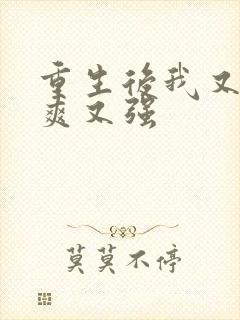 重生后我又
爽又强
莫莫不停